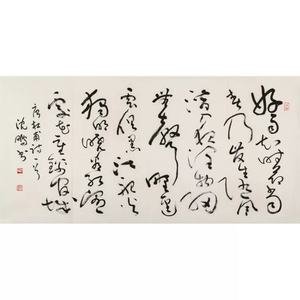 好雨知時節當
春乃發生隨風
潛入夜潤物細
無聲野徑
雲俱黑江船火
獨明曉看紅濕
處花重錦官城
唐杜甫詩一首
沈鵬書